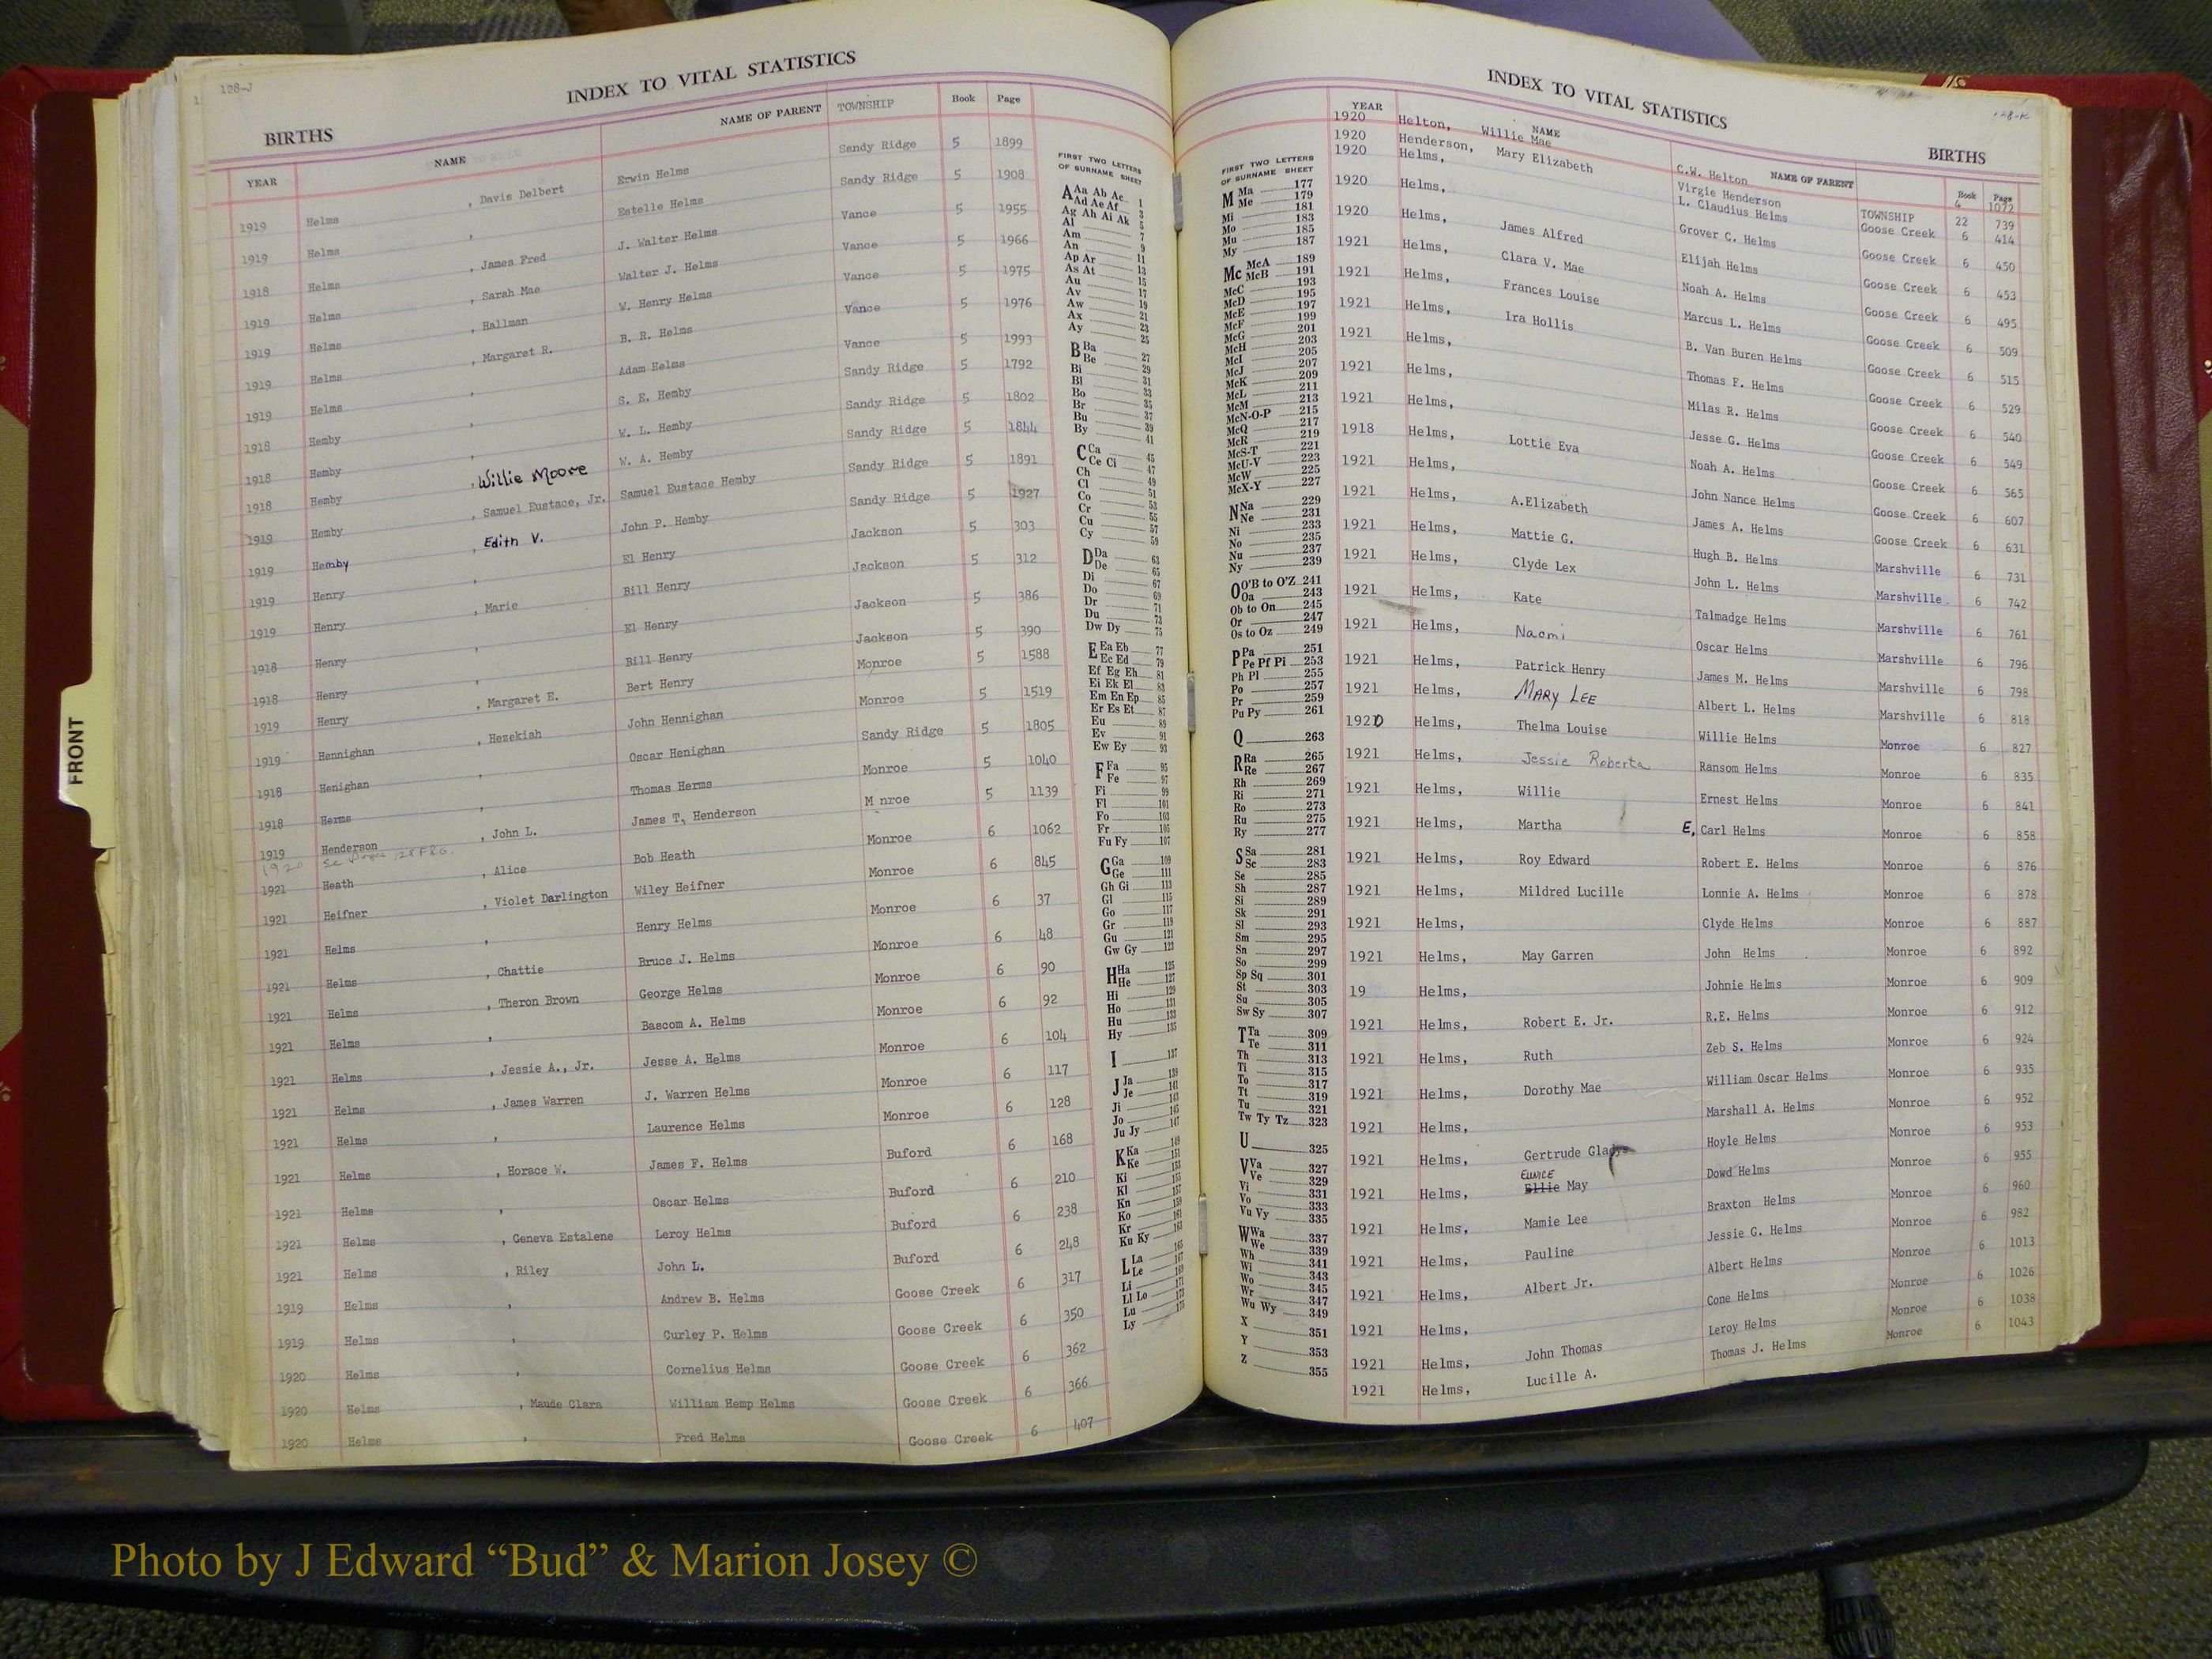 128-J
INDEX TO VITAL STATISTICS
BIRTHS
YEAR NAME NAME OF PARENT TOWNSHIP Book Page
1919 Helms , Davis Delbert Erwin Helms Sandy Ridge 5 1899
1919 Helms , Estelle Helms Sandy Ridge 5 1908
1918 Helms , James Fred J. Walter Helms Vance 5 1955
1919 Helms , Sarah Mae Walter J. Helms Vance 5 1966
1919 Helms , Hallman W. Henry Helms Vance 5 1975
1919 Helms , Margaret R. B. R. Helms Vance 5 1976
1919 Helms , Adam Helms Vance 5 1993
1918 Hemby , S. E. Hemby Sandy Ridge 5 1792
1918 Hemby , W. L. Hemby Sandy Ridge 5 1802
1918 Hemby , Willie Moore W. A. Hemby Sandy Ridge 5 1844
1919 Hemby , Samuel Eustace, Jr. Samuel Eustace Hemby Sandy Ridge 5 1891
1919 Hemby , Edith V. John P. Hemby Sandy Ridge 5 1927
1919 Henry , El Henry Jackson 5 303
1919 Henry , Marie Bill Henry Jackson 5 312
1918 Henry , El Henry Jackson 5 386
1918 Henry , Bill Henry Jackson 5 390
1919 Henry , Margaret E. Bert Henry Monroe 5 1588
1919 Hennighan , Hezekiah John Hennighan Monroe 5 1519
1918 Henighan , Oscar Henighan Sandy Ridge 5 1805
1918 Herms , Thomas Herms Monroe 5 1040
1919 Henderson , John L. James T. Henderson M nroe 5 1139
1920
1921 Heath , Alice Bob Heath Monroe 6 1062
1921 Heifner , Violet Darlington Wiley Heifner Monroe 6 845
1921 Helms , Henry Helms Monroe 6 37
1921 Helms , Chattie Bruce J. Helms Monroe 6 48
1921 Helms , Theron Brown George Helms Monroe 6 90
1921 Helms , Bascom A. Helms Monroe 6 92
1921 Helms , Jessie A., Jr. Jesse A. Helms Monroe 6 104
1921 Helms , James Warren J. Warren Helms Monroe 6 117
1921 Helms , Laurence Helms Monroe 6 128
1921 Helms , Horace W. James F. Helms Buford 6 168
1921 Helms , Oscar Helms Buford 6 210
1921 Helms , Geneva Estalene Leroy Helms Buford 6 238
1921 Helms , Riley John L. Buford 6 248
1919 Helms , Andrew B. Helms Goose Creek 6 317
1919 Helms , Curley P. Helms Goose Creek 6 350
1920 Helms , Cornelius Helms Goose Creek 6 362
1920 Helms , Maude Clara William Hemp Helms Goose Creek 6 366
1920 Helms , Fred Helms Goose Creek 6 407
FIRST TWO LETTERS
OF SURNAME SHEET
A Aa Ab Ac 1
Ad Ae Af 3
Ag Ah Ai Ak 5
Al 7
Am 9
An 11
Ap Ar 13
As At 15
Au 17
Av 19
Aw 21
Ax 23
Ay 25
B Ba 27
Be 29
Bi 31
Bl 33
Bo 35
Br 37
Bu 39
By 41
C Ca 45
Ce Ci 47
Ch 49
Cl 51
Co 53
Cr 55
Cu 57
Cy 59
D Da 63
De 65
Di 67
Do 69
Dr 71
Du 73
Dw Dy 75
E Ea Eb 77
Ec Ed 79
Ef Eg Eh 81
Ei Ek El 83
Em En Ep 85
Er Es Et 87
Eu 89
Ev 91
Ew Ey 93
F Fa 95
Fe 97
Fi 99
Fl 101
Fo 103
Fr 105
Fu Fy 107
G Ga 109
Ge 111
Gh Gi 113
Gl 115
Go 117
Gr 119
Gu 121
Gw Gy 123
H Ha 125
He 127
Hi 129
Ho 131
Hu 133
Hy 135
I 137
J Ja 139
Je 141
Ji 143
Jo 145
Ju Jy 147
K Ka 149
Ke 151
Ki 153
Kl 155
Kn 157
Ko 159
Kr 161
Ku Ky 163
L La 165
Le 167
Li 169
Ll Lo 171
Lu 173
Ly 175
128-K
INDEX TO VITAL STATISTICS
BIRTHS
FIRST TWO LETTERS
OF SURNAME SHEET
M Ma 177
Me 179
Mi 181
Mo 183
Mu 185
My 187
Mc McA 189
McB 191
McC 193
McD 195
McE 197
McF 199
McG 201
McH 203
McI 205
McJ 207
McK 209
McL 211
McM 213
McN-O-P 215
McQ 217
McR 219
McS-T 221
McU-V 223
McW 225
McX-Y 227
N Na 229
Ne 231
Ni 233
No 235
Nu 237
Ny 239
O O'B to O'Z 241
Oa 243
Ob to On 245
Or 247
Os to Oz 249
P Pa 251
Pe Pf Pi 253
Ph Pl 255
Po 257
Pr 259
Pu Py 261
Q 263
R Ra 265
Re 267
Rh 269
Ri 271
Ro 273
Ru 275
Ry 277
S Sa 281
Sc 283
Se 285
Sh 287
Si 289
Sk 291
Sl 293
Sm 295
Sn 297
So 299
Sp Sq 301
St 303
Su 305
Sw Sy 307
T Ta 309
Te 311
Th 313
Ti 315
To 317
Tt 319
Tu 321
Tw Ty Tz 323
U 325
V Va 327
Ve 329
Vi 331
Vo 333
Vu Vy 335
W Wa 337
We 339
Wh 341
Wi 343
Wo 345
Wr 347
Wu Wy 349
X 351
Y 353
Z 355
YEAR NAME NAME OF PARENT TOWNSHIP Book Page
1920 Helton, Willie Mae C.W. Helton 4 1072
1920 Henderson, Mary Elizabeth Virgie Henderson 22 739
1920 Helms, L. Claudius Helms Goose Creek 6 414
1920 Helms, Grover C. Helms Goose Creek 6 450
1920 Helms, James Alfred Elijah Helms Goose Creek 6 453
1921 Helms, Clara V. Mae Noah A. Helms Goose Creek 6 495
1921 Helms, Frances Louise Marcus L. Helms Goose Creek 6 509
1921 Helms, Ira Hollis B. Van Buren Helms Goose Creek 6 515
1921 Helms, Thomas F. Helms Goose Creek 6 529
1921 Helms, Milas R. Helms Goose Creek 6 540
1921 Helms, Jesse G. Helms Goose Creek 6 549
1918 Helms, Lottie Eva Noah A. Helms Goose Creek 6 565
1921 Helms, John Nance Helms Goose Creek 6 607
1921 Helms, A.Elizabeth James A. Helms Goose Creek 6 631
1921 Helms, Mattie G. Hugh B. Helms Marshville 6 731
1921 Helms, Clyde Lex John L. Helms Marshville 6 742
1921 Helms, Kate Talmadge Helms Marshville 6 761
1921 Helms, Naomi Oscar Helms Marshville 6 796
1921 Helms, Patrick Henry James M. Helms Marshville 6 798
1921 Helms, MARY LEE Albert L. Helms Marshville 6 818
1920 Helms, Thelma Louise Willie Helms Monroe 6 827
1921 Helms, Jessie Roberta Ransom Helms Monroe 6 835
1921 Helms, Willie Ernest Helms Monroe 6 841
1921 Helms, Martha E, Carl Helms Monroe 6 858
1921 Helms, Roy Edward Robert E. Helms Monroe 6 876
1921 Helms, Mildred Lucille Lonnie A. Helms Monroe 6 878
1921 Helms, Clyde Helms Monroe 6 887
1921 Helms, May Garren John Helms Monroe 6 892
19 Helms, Johnie Helms Monroe 6 909
1921 Helms, Robert E. Jr. R.E. Helms Monroe 6 912
1921 Helms, Ruth Zeb S. Helms Monroe 6 924
1921 Helms, Dorothy Mae William Oscar Helms Monroe 6 935
1921 Helms, Marshall A. Helms Monroe 6 952
1921 Helms, Gertrude Gladys Hoyle Helms Monroe 6 953
EUNICE
1921 Helms, Ellie May Dowd Helms Monroe 6 955
1921 Helms, Mamie Lee Braxton Helms Monroe 6 960
1921 Helms, Pauline Jessie G. Helms Monroe 6 982
1921 Helms, Albert Jr. Albert Helms Monroe 6 1013
1921 Helms, Cone Helms Monroe 6 1026
1921 Helms, John Thomas Leroy Helms Monroe 6 1038
1921 Helms, Lucille A. Thomas J. Helms Monroe 6 1043
FRONT
Photo by J Edward “Bud” & Marion Josey ©